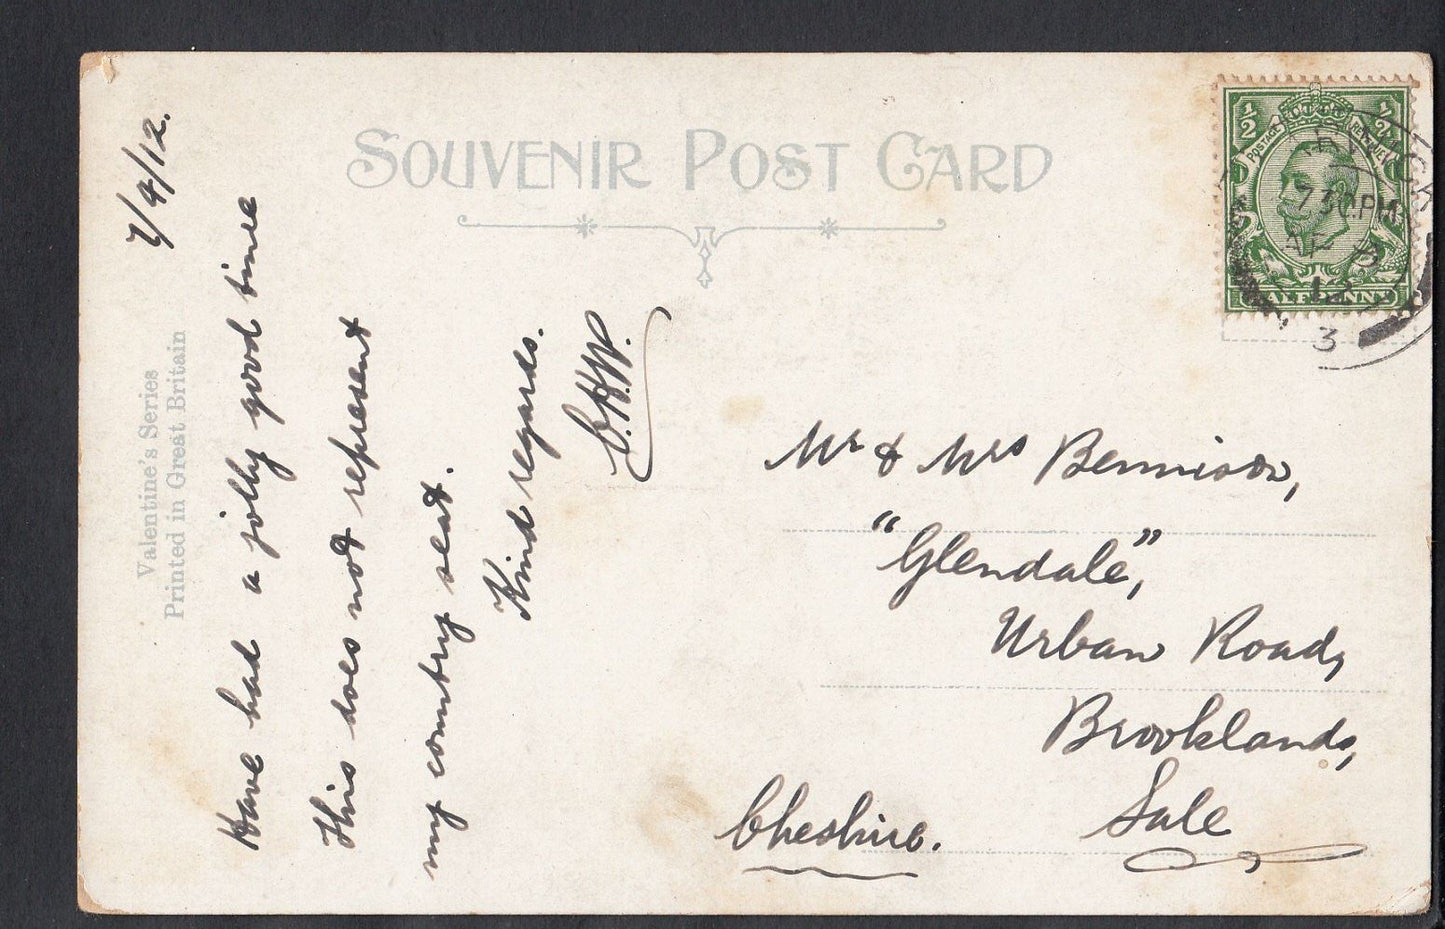 SOUVENIR POST CARD
Valentine's Series
Printed in Great Britain
7/4/12.
Have had a jolly good time
This does not represent
my country seat.
Kind regards.
C.H.W.
½ ½
POSTAGE REVENUE
HALFPENNY
7 30 PM
AP
12
3
Mr & Mrs Bennison,
"Glendale",
Urban Road,
Brooklands,
Sale
Cheshire.